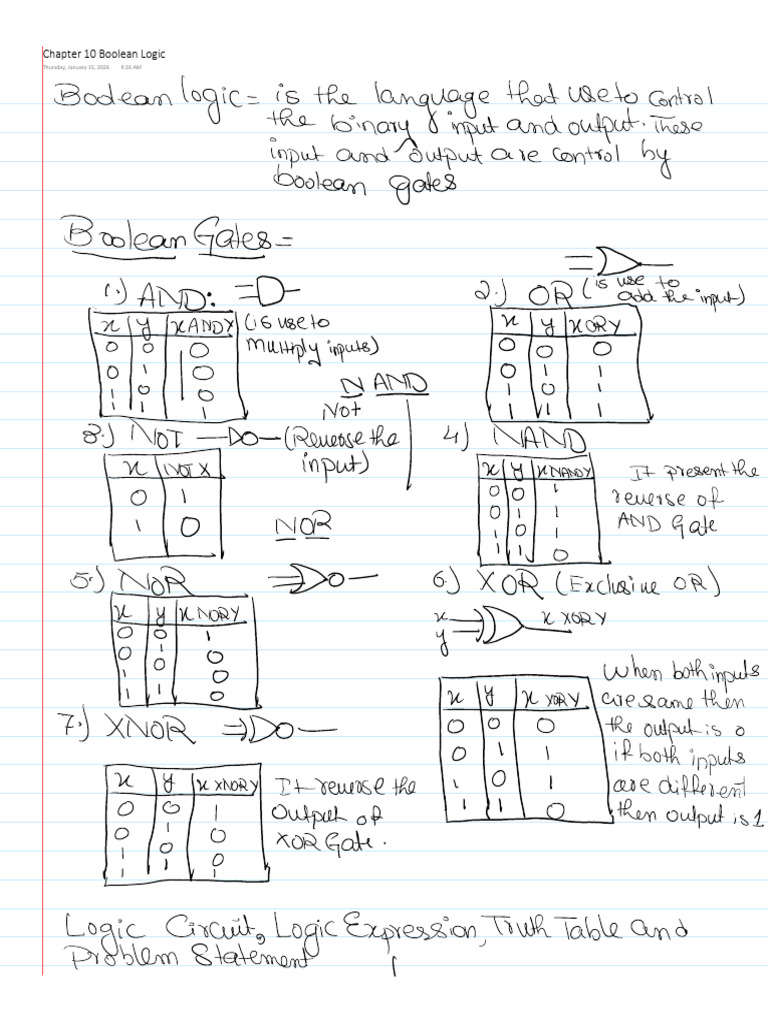 Chapter 10 Boolean Logic
Thursday, January 15, 2026 9:16 AM
Boolean logic = is the language that use to control
the binary input and output. These
input and output are control by
boolean gates
Boolean Gates =
1.) AND:
(is use to
multiply inputs)
x y x AND Y
0 0 0
0 1 0
1 0 0
1 1 1
2.) OR (is use to
add the input)
x y x OR Y
0 0 0
0 1 1
1 0 1
1 1 1
N AND
Not
3.) NOT (Reverse the
input)
x NOT X
0 1
1 0
NOR
4.) NAND
x y x NAND Y
0 0 1
0 1 1
1 0 1
1 1 0
It present the
reverse of
AND Gate
5.) NOR
x y x NOR Y
0 0 1
0 1 0
1 0 0
1 1 0
6.) XOR (Exclusive OR)
x x XOR Y
y
x y x XOR Y
0 0 0
0 1 1
1 0 1
1 1 0
When both inputs
are same then
the output is 0
if both inputs
are different
then output is 1
7.) XNOR
x y x XNOR Y
0 0 1
0 1 0
1 0 0
1 1 1
It reverse the
output of
XOR Gate.
Logic Circuit, Logic Expression, Truth Table and
Problem Statement